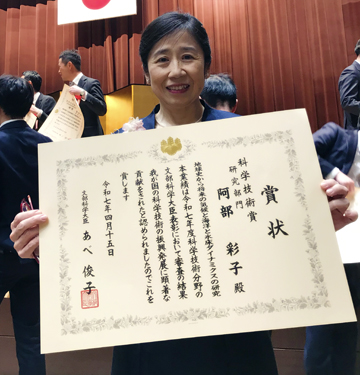 賞状
科学技術賞
研究部門
阿部 彩子 殿
地球史から将来の気候と海洋と氷床ダイナミクスの研究
本業績は令和七年度科学技術分野の
文部科学大臣表彰において審査の結果
我が国の科学技術の振興発展に顕著な
貢献をされたと認められましたのでこれを
賞します
令和七年四月十五日
文部科学大臣
あべ 俊子